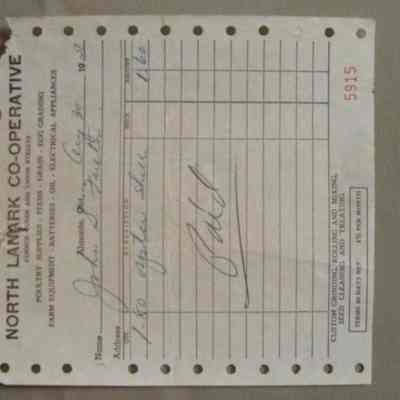 NORTH LANARK CO-OPERATIVE
CORNER BRIDGE AND UNION STREETS
POULTRY SUPPLIES - FEEDS - GRAIN - EGG GRADING
FARM EQUIPMENT - BATTERIES - OIL - ELECTRICAL APPLIANCES
Almonte, Ont., Aug 30 19
Name John D.
Address
QTY. DESCRIPTION PRICE AMOUNT
1-80 1.60
Paid
CUSTOM GRINDING, ROLLING AND MIXING,
SEED CLEANING AND TREATING
TERMS 30 DAYS NET 1% PER MONTH
5915